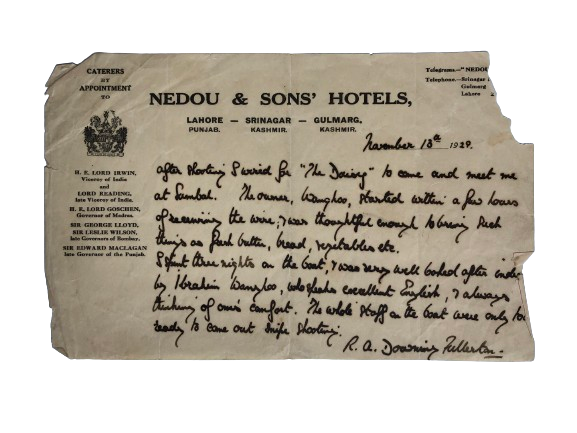 CATERERS
BY
APPOINTMENT
TO
H. E. LORD IRWIN,
Viceroy of India
and
LORD READING,
late Viceroy of India.
H. E. LORD GOSCHEN,
Governor of Madras.
SIR GEORGE LLOYD,
SIR LESLIE WILSON,
late Governors of Bombay.
SIR EDWARD MACLAGAN
late Governor of the Punjab.
Telegrams.—"NEDOU
Telephone.—Srinagar
Gulmarg
Lahore
NEDOU & SONS' HOTELS,
LAHORE — SRINAGAR — GULMARG,
PUNJAB. KASHMIR. KASHMIR.
November 13th 1929.
After shooting I wired for "The" to come and meet me
at Sumbal. The owner, Wangnoo, started within a few hours
of receiving the wire, & was thoughtful enough to bring such
things as fresh butter, bread, vegetables etc.
I spent three nights on the boat, & was very well looked after
by Ibrahim Wangnoo, who speaks excellent English, & always
thinking of one's comfort. The whole staff on the boat were only too
ready to come out snipe shooting.
R. A. Downing Fullerton.